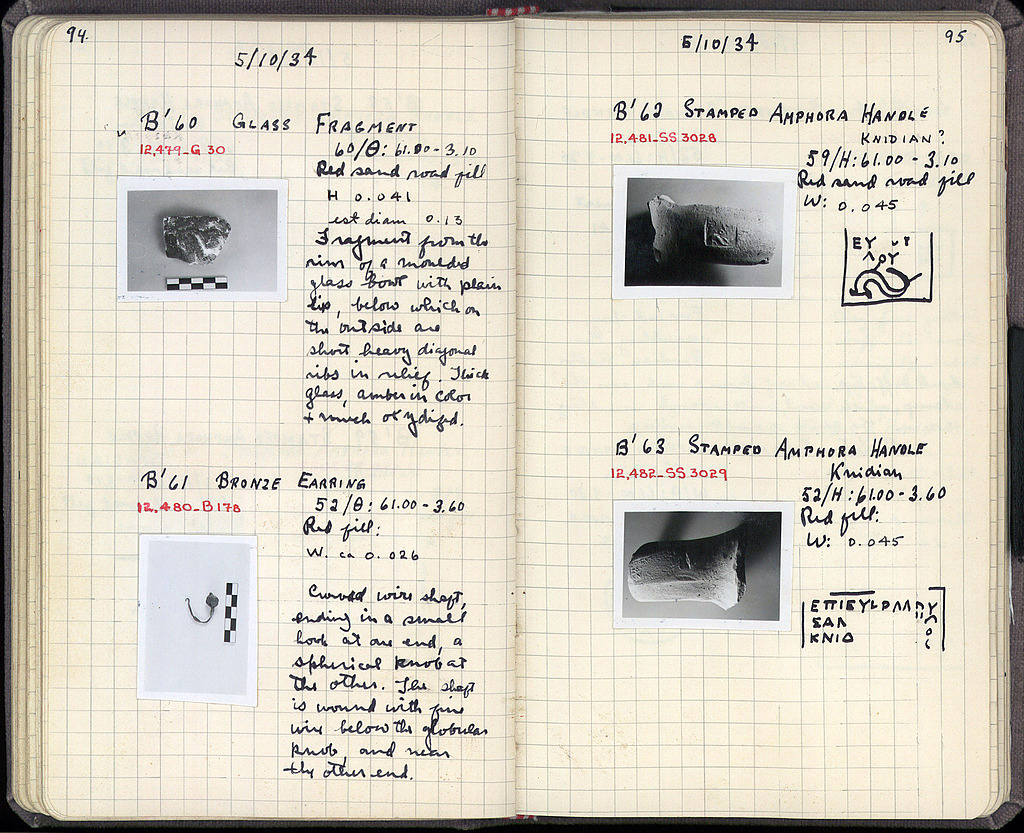 94.
5/10/34
B'60 GLASS FRAGMENT
12,479-G 30
60/Θ: 61.00 - 3.10
Red sand road fill
H 0.041
est diam 0.13
Fragment from the
rim of a moulded
glass bowl with plain
lip, below which on
the outside are
short heavy diagonal
ribs in relief. Thick
glass, amber in color
+ much oxydized.
B'61 BRONZE EARRING
12,480-B 178
52/Θ: 61.00 - 3.60
Red fill:
W. ca 0.026
Curved wire shaft,
ending in a small
hook at one end, a
spherical knob at
the other. The shaft
is wound with fine
wire below the globular
knob, and near
the other end.
95
5/10/34
B'62 STAMPED AMPHORA HANDLE
12,481-SS 3028
KNIDIAN?
59/H: 61.00 - 3.10
Red sand road fill
W: 0.045
ΕΥ
ΛΟΥ
B'63 STAMPED AMPHORA HANDLE
12,482-SS 3029
Knidian
52/H: 61.00 - 3.60
Red fill:
W: 0.045
ΣΑΛ
ΚΝΙΔ